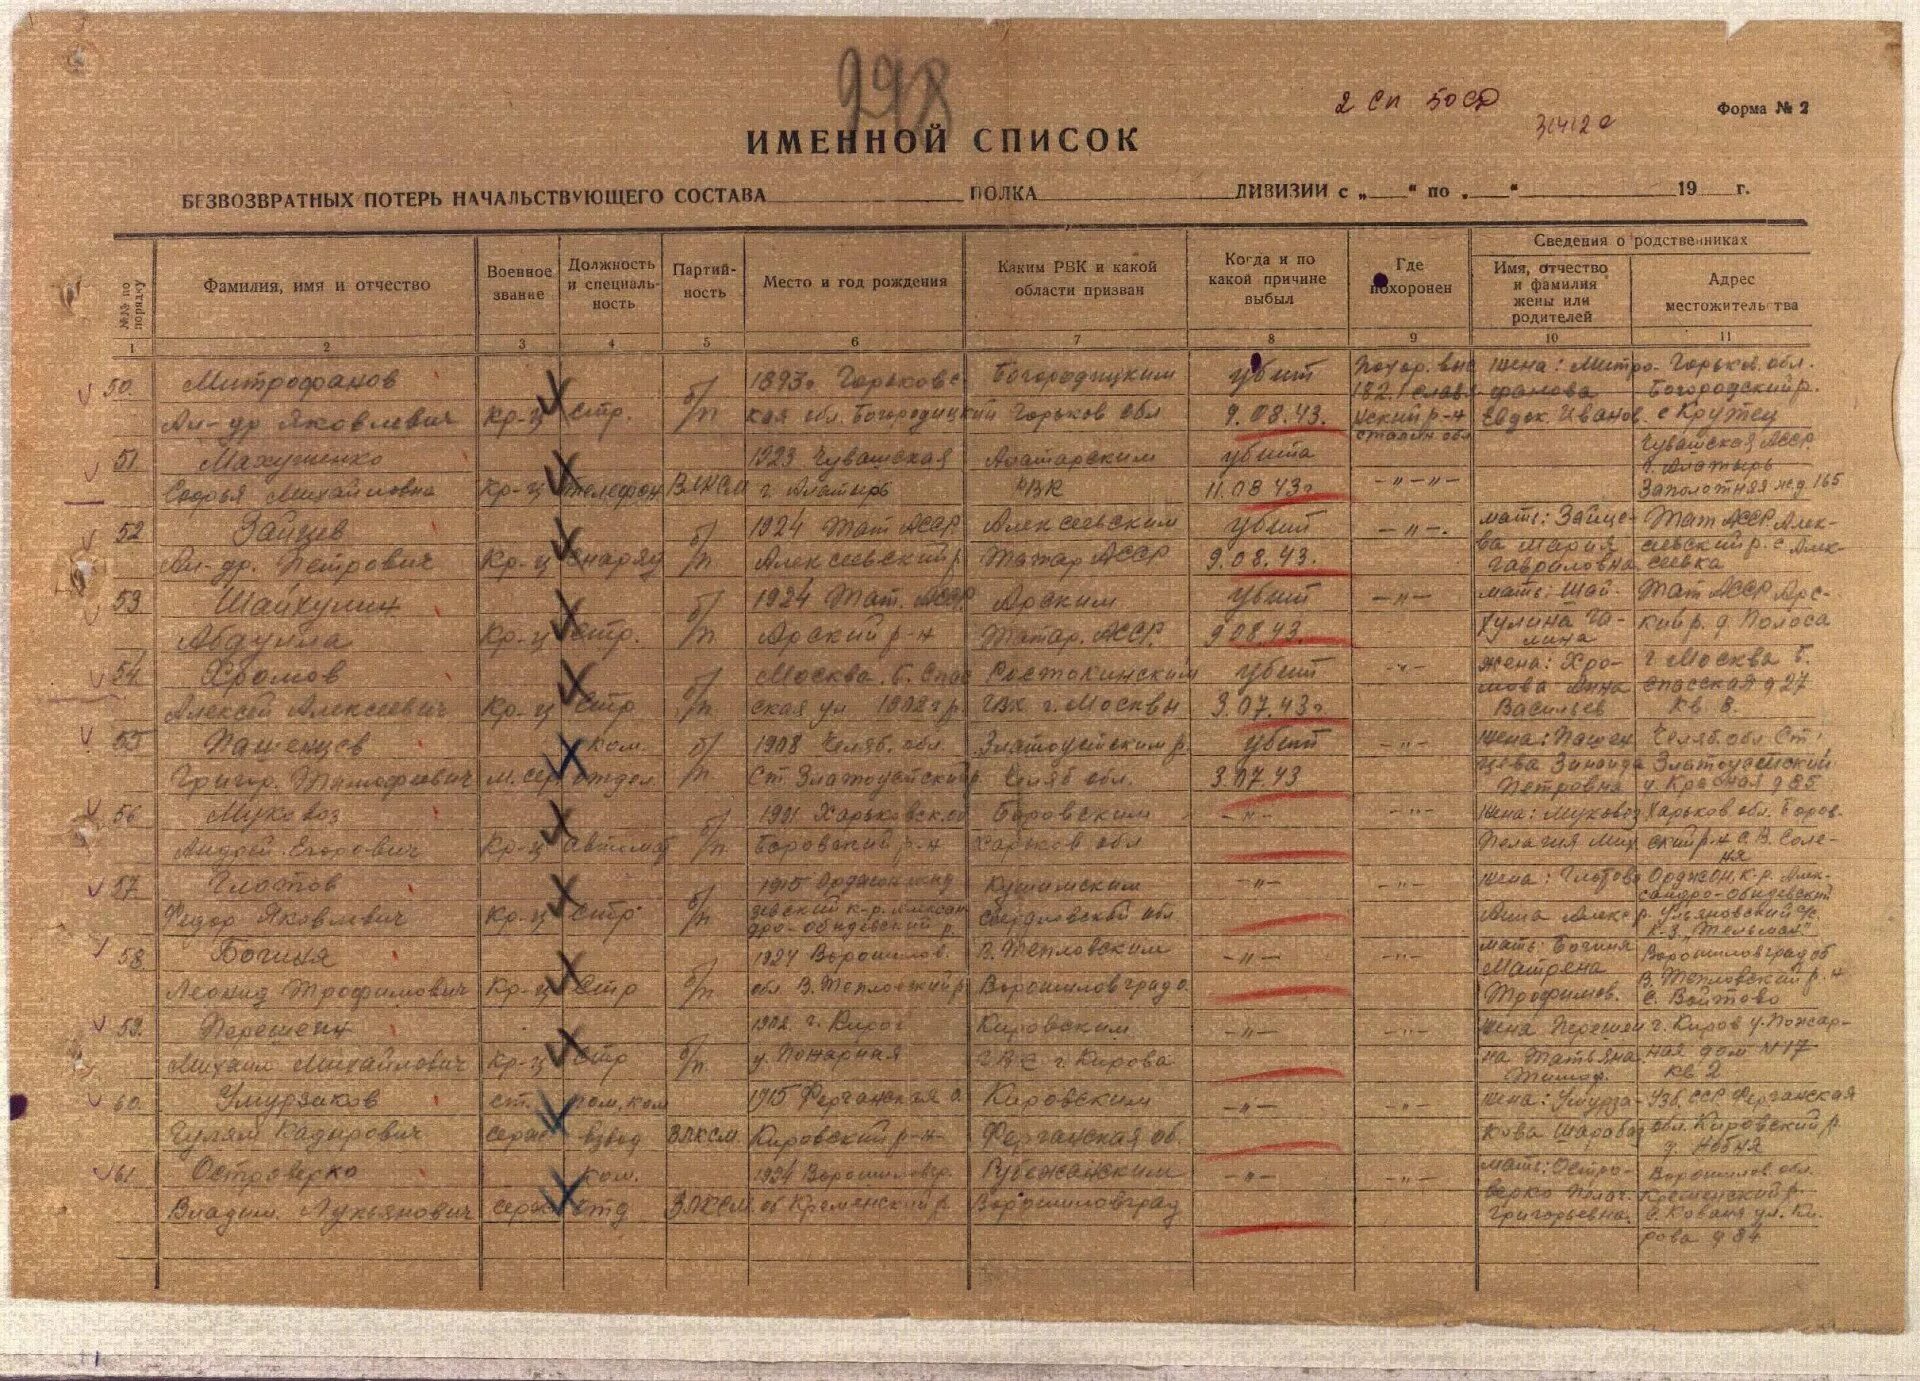 998
2 сп 50 СД
Форма № 2
ИМЕННОЙ СПИСОК
БЕЗВОЗВРАТНЫХ ПОТЕРЬ НАЧАЛЬСТВУЮЩЕГО СОСТАВА ПОЛКА ДИВИЗИИ с „ “ по „ “ 19 г.
№№ по порядку
Фамилия, имя и отчество
Военное звание
Должность и специальность
Партийность
Место и год рождения
Каким РВК и какой области призван
Когда и по какой причине выбыл
Где похоронен
Сведения о родственниках
Имя, отчество и фамилия жены или родителей
Адрес местожительства
1 2 3 4 5 6 7 8 9 10 11
50. Митрофанов 1893г Горьковс Богородицким убит Похор. выс жена: Митро- Горьков. обл.
182.1 славя фанова Богородский р.
Ал-др Яковлевич Кр-ц Стр. б/п кая обл. Богородицкий Горьков обл 9.08.43. нский р-н Евдок. Иванов. с Крутец
сталин обл
51 Махушенко 1923 Чувашская Алатарским убита Чувашская АССР
г. Алатырь
Софья Михайловна Кр-ц телефон ВЛКСМ г. Алатырь РВК 11.08 43г -"-"- Заполотная ж.д 165
52 Зайцев 1924 Тат АССР Алексеевским убит -"-. мать: Зайце- Тат АССР Алек-
ва Мария сеевский р. с Алек-
Ал-др. Петрович Кр-ц Снаряд б/п Алексеевский р Татар АССР 9.08.43. Гавриловна сеевка
53 Шайхулин 1924 Тат. АССР Арским убит -"- мать: Шай- Тат АССР Арс-
Абдулла Кр-ц Стр. б/п Арский р-н Татар. АССР. 9 08.43 хулина Га- кий р. д Полоса
лица
54. Хромов Москва. б. Спас Ростокинским убит -"- жена: Хро- г Москва б.
мова Анна спасская д 27
Алексей Алексеевич Кр-ц Стр б/п ская ул 1902 г р ГВК г. Москвы 3.07.43г. Васильев кв 8.
55 Пашенцев ком. 1908 Челяб. обл Златоустским р. убит -"- жена: Пашен Челяб. обл Ст
цева Зинаида Златоустский
Григор. Тимофеевич м. сер отдел б/п Ст Златоустский р Челяб обл. 3.07.43 Петровна у. Красная д 85
56 Муковоз 1901 Харьковск. об Боровским -"- -"- жена: Муковоз Харьков обл. Боров-
Андрей Егорович Кр-ц автомат б/п Боровский р-н Харьков обл Пелагия Мих ский р-н С. В. Соле-
ня
57. Глотов 1915 Орджоникид Кушимским -"- -"- жена: Глотова Орджон. к-р. Алек-
сандро-Обидевский
Федор Яковлевич Кр-ц Стр б/п зевский к-р. Алексан Свердловской обл Анна Алекс р. Ульяновский с/с
дро-обидевский р. к-з „Тельман“
58. Богиня 1924 Ворошилов. В. Тепловским -"- -"- мать: Богиня Ворошиловград об
Матрена В. Тепловский р-н
Леонид Трофимович Кр-ц Стр б/п обл. В. Тепловский р Ворошиловград о. Трофимов. С. Войтово
59. Перешеин 1902 г. Киров Кировским -"- -"- жена Перешеи г. Киров у. Пожар-
Михаил Михайлович Кр-ц Стр б/п у. Пожарная г. Кирова на Татьяна ная дом N 17
Тимоф. кв 2
60. Умурзаков ст. пом, ком 1915 Ферганская о. Кировским -"- -"- жена: Умурза- Узб. ССР Ферганская
Гулям Кадирович серж взвод ВЛКСМ. Кировский р-н Ферганская об. кова Шарабоз обл. Кировский р.
61. Островерко ком. 1924 Ворошиловгр. Рубежанским -"- -"- мать: Остро- Ворошилов. обл.
верко Пелаг. Кременский р
Владим. Лукьянович серж отд ВЛКСМ. об Кременский р Ворошиловград Григорьевна. ул. Ки-
рова д 84